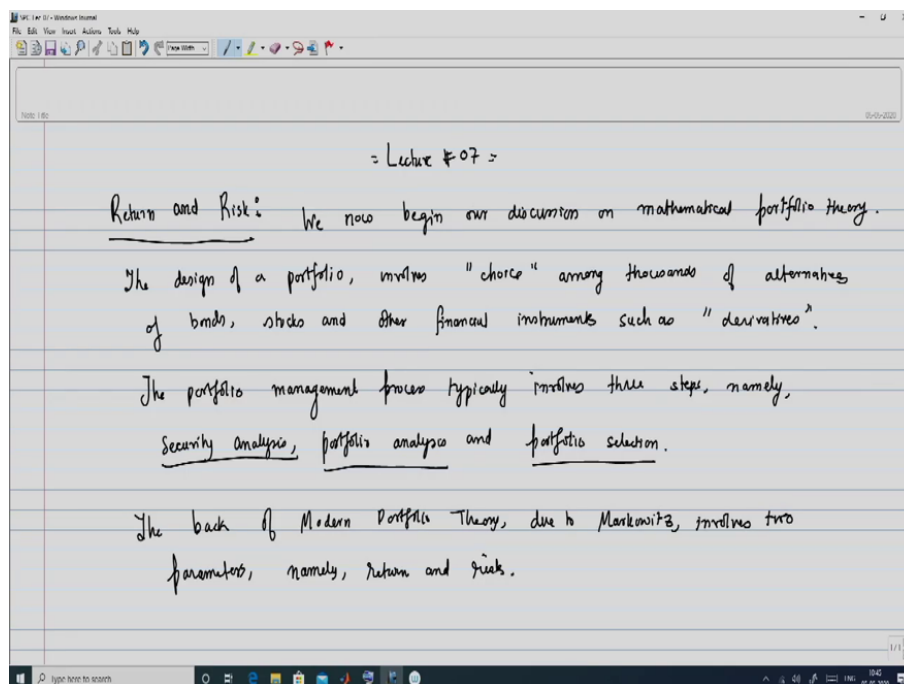 SPC Lec 07 - Windows Journal
File Edit View Insert Actions Tools Help
Page Width
Note Title
05-05-2020
= Lecture # 07 =
Return and Risk: We now begin our discussion on mathematical portfolio theory.
The design of a portfolio, involves "choice" among thousands of alternatives
of bonds, stocks and other financial instruments such as "derivatives".
The portfolio management process typically involves three steps, namely,
security analysis, portfolio analysis and portfolio selection.
The back of Modern Portfolio Theory, due to Markowitz, involves two
parameters, namely, return and risk.
1/1
Type here to search
ENG
10:45